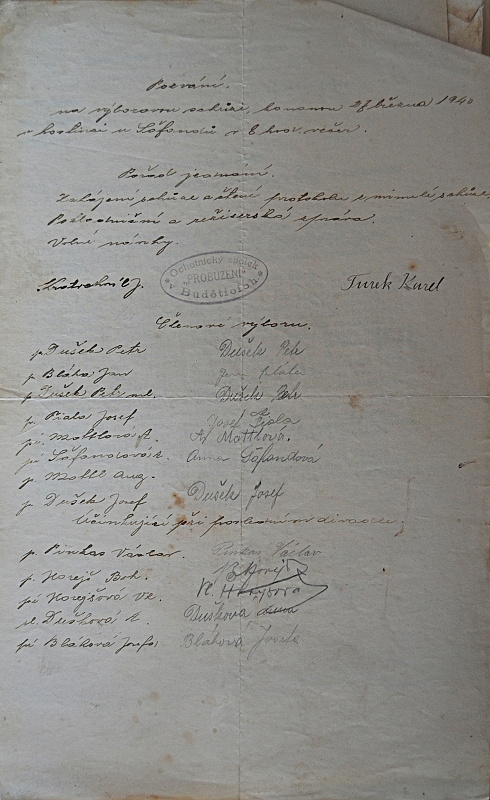 Pozvání.
na výborovou schůzi, konanou 28 března 1940
v hostinci u Šafandů v 8 hod. večer.
Pořad jednání.
Zahájení schůze a čtení protokolu z minulé schůze,
Pokladniční a režiserská zpráva.
Volné návrhy.
Ochotnický spolek
"PROBUZENÍ"
v Budětlofoh
Turek Karel
Členové výboru.
p. Dušek Petr Dušek Petr
p. Bláha Jan Jan
p. Dušek Petr ml. Dušek Petr
p. Fiala Josef Josef Fiala
pí. Mottlová A. A. Mottlová.
Anna Šafandová
p. Mottl Aug.
p. Dušek Josef Dušek Josef
Účinkující při posledním divadle:
p. Pinkas Václav. Pinkas Václav
p. Horejš Boh. B Horejš
pí Horejšová Vl.
sl. Dušková A. Dušková Anna
pí Bláhová Josefa Bláhová Josefa